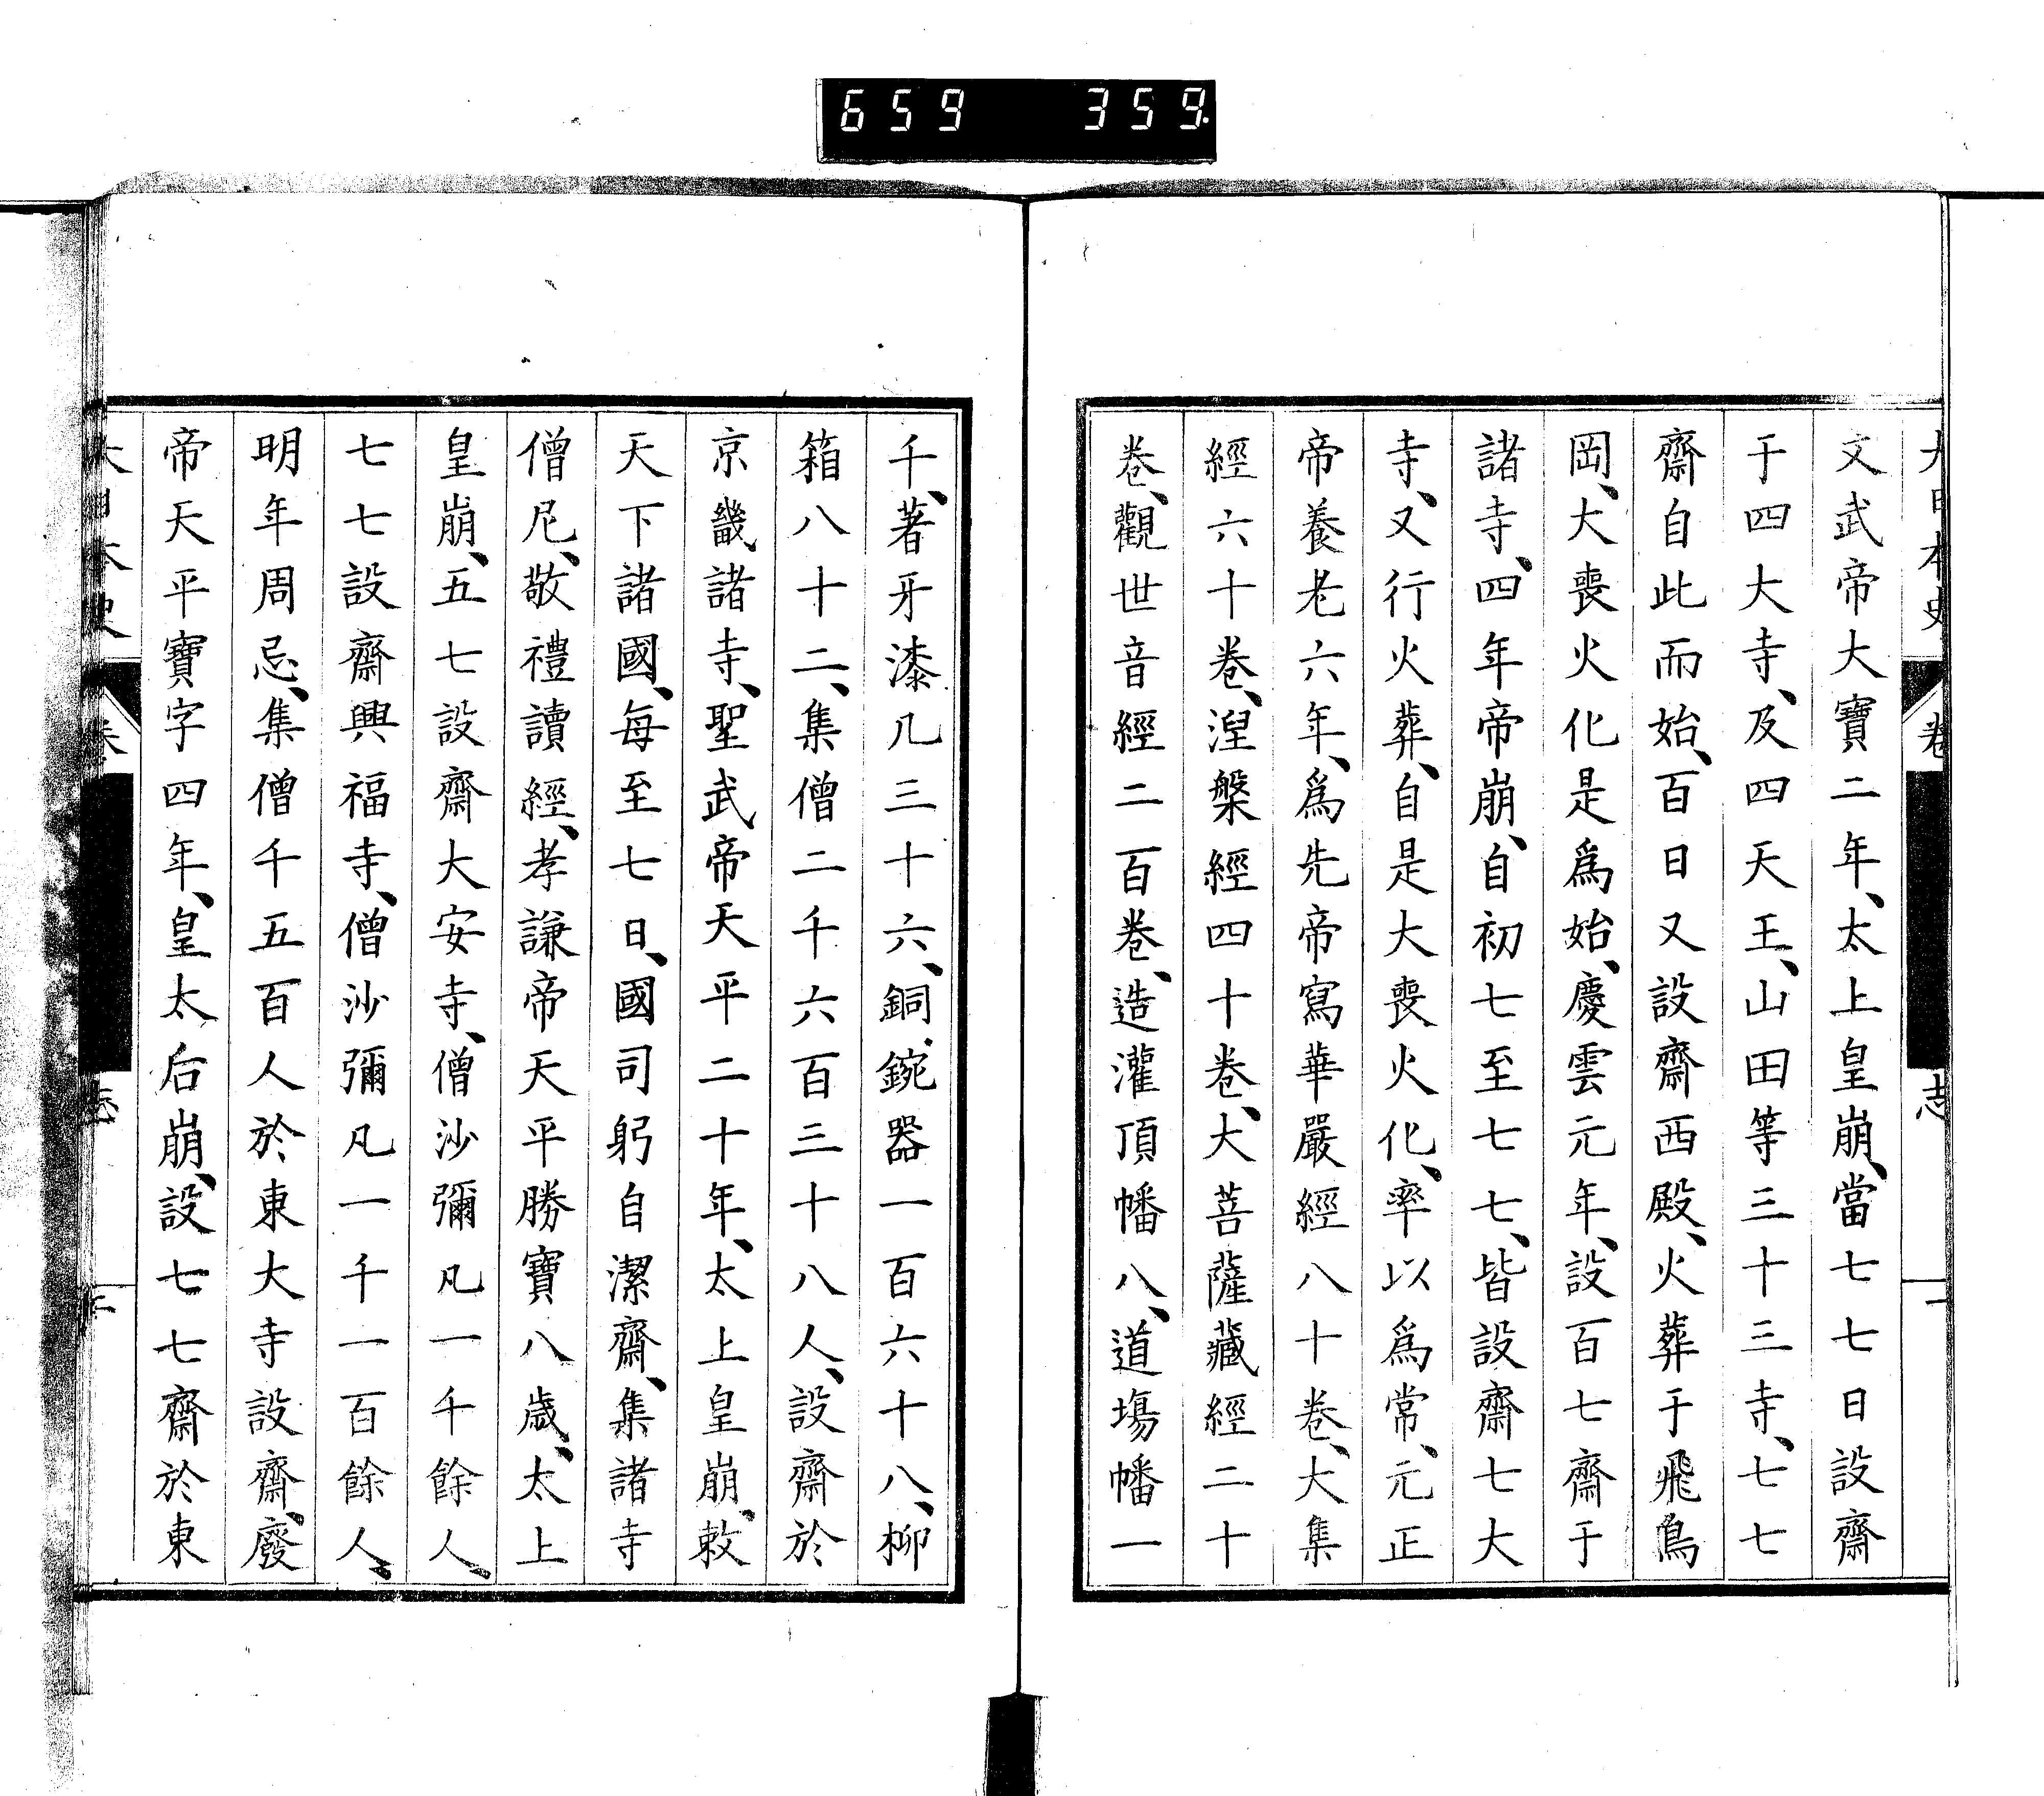 659 359.
大日本史 卷 志
文武帝大寶二年、太上皇崩、當七七日設齋
于四大寺、及四天王、山田等三十三寺、七七
齋自此而始、百日又設齋西殿、火葬于飛鳥
岡、大喪火化是爲始、慶雲元年、設百七齋于
諸寺、四年帝崩、自初七至七七、皆設齋七大
寺、又行火葬、自是大喪火化、率以爲常、元正
帝養老六年、爲先帝寫華嚴經八十卷、大集
經六十卷、涅槃經四十卷、大菩薩藏經二十
卷、觀世音經二百卷、造灌頂幡八、道場幡一
千、著牙漆几三十六、銅鋺器一百六十八、柳
箱八十二、集僧二千六百三十八人、設齋於
京畿諸寺、聖武帝天平二十年、太上皇崩、敕
天下諸國、每至七日、國司躬自潔齋、集諸寺
僧尼、敬禮讀經、孝謙帝天平勝寶八歲、太上
皇崩、五七設齋大安寺、僧沙彌凡一千餘人、
七七設齋興福寺、僧沙彌凡一千一百餘人、
明年周忌、集僧千五百人於東大寺設齋、廢
帝天平寶字四年、皇太后崩、設七七齋於東
大日本史 卷 志